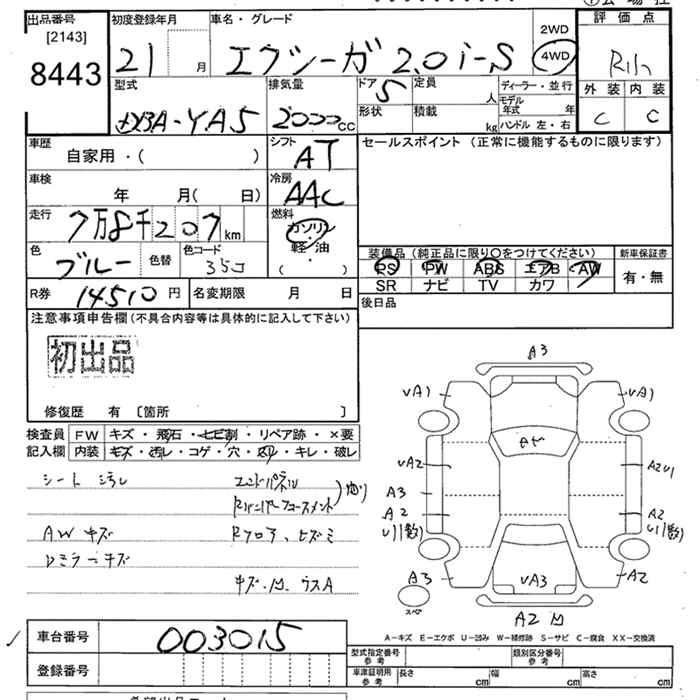 出品番号
[2143]
8443
初度登録年月
21 月
車名・グレード
エクシーガ 2.0i-S
2WD
4WD
評価点
外装 内装
C C
型式
YA5
排気量
2000 CC
ドア
5
定員
人
形状
積載
kg
ディーラー・並行
モデル年式 年
ハンドル 左・右
車歴
自家用・( )
シフト
AT
セールスポイント (正常に機能するものに限ります)
車検
年 月( 日)
冷房
AAC
走行
7万8千207 km
燃料
ガソリン
軽・油
( )
色
ブルー
色替
色コード
35J
装備品 (純正品に限り○をつけてください)
PS PW ABS エアB AW
SR ナビ TV カワ
新車保証書
有・無
R券 14510 円
名変期限 月 日
後日品
注意事項申告欄 (不具合内容等は具体的に記入して下さい)
初出品
修復歴 有 〔箇所 〕
検査員
記入欄
FW キズ・飛石・ヒビ割・リペア跡・×要
内装 キズ・汚レ・コゲ・穴・凹リ・キレ・破レ
シート 汚レ
エンドパネル
AW キズ
Rフロア、ヒズミ
ドミラーキズ
A3
VA1
VA1
VA2
A3
A2
A3
VA3
A2
A2
A2 凹
A-キズ E-エクボ U-凹み W-補修跡 S-サビ C-腐食 XX-交換済
車台番号
003015
登録番号
型式指定番号
参考
類別区分番号
参考
車庫証明用
参考
長さ cm
幅 cm
高さ cm